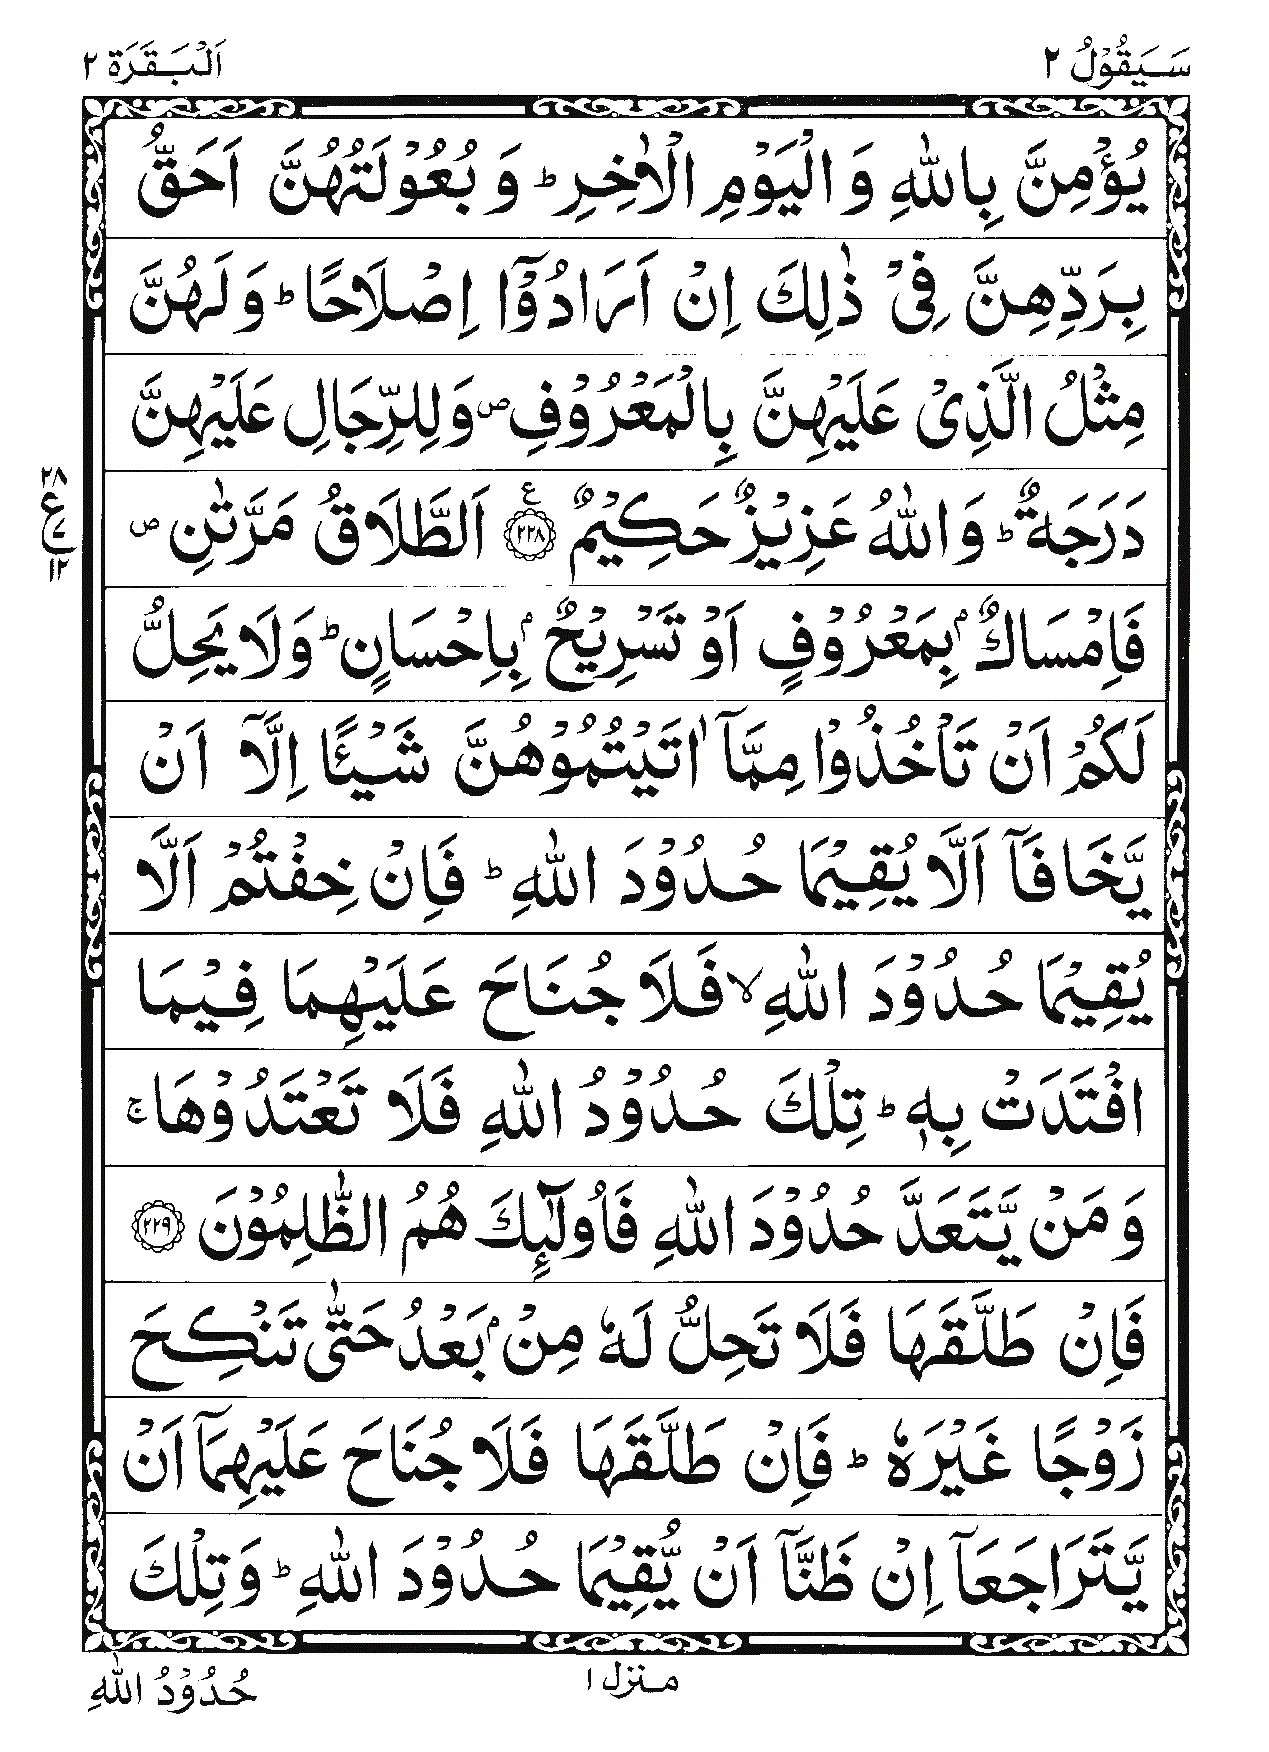 سَيَقُوْلُ ٢
اَلْبَقَرَة ٢
يُؤْمِنَّ بِاللّٰهِ وَ الْيَوْمِ الْاٰخِرِ ؕ وَ بُعُوْلَتُهُنَّ اَحَقُّ
بِرَدِّهِنَّ فِیْ ذٰلِكَ اِنْ اَرَادُوْۤا اِصْلَاحًا ؕ وَ لَهُنَّ
مِثْلُ الَّذِیْ عَلَيْهِنَّ بِالْمَعْرُوْفِ ۪ وَ لِلرِّجَالِ عَلَيْهِنَّ
دَرَجَةٌ ؕ وَ اللّٰهُ عَزِيْزٌ حَكِيْمٌ ﴿٢٢٨﴾ ع اَلطَّلَاقُ مَرَّتٰنِ ۪
٢٨
ع
٧
١٢
فَاِمْسَاكٌۢ بِمَعْرُوْفٍ اَوْ تَسْرِيْحٌۢ بِاِحْسَانٍ ؕ وَ لَا يَحِلُّ
لَكُمْ اَنْ تَاْخُذُوْا مِمَّاۤ اٰتَيْتُمُوْهُنَّ شَيْـًٔا اِلَّاۤ اَنْ
يَّخَافَاۤ اَلَّا يُقِيْمَا حُدُوْدَ اللّٰهِ ؕ فَاِنْ خِفْتُمْ اَلَّا
يُقِيْمَا حُدُوْدَ اللّٰهِ ۙ فَلَا جُنَاحَ عَلَيْهِمَا فِيْمَا
افْتَدَتْ بِهٖ ؕ تِلْكَ حُدُوْدُ اللّٰهِ فَلَا تَعْتَدُوْهَا ۚ
وَ مَنْ يَّتَعَدَّ حُدُوْدَ اللّٰهِ فَاُولٰٓئِكَ هُمُ الظّٰلِمُوْنَ ﴿٢٢٩﴾
فَاِنْ طَلَّقَهَا فَلَا تَحِلُّ لَهٗ مِنْۢ بَعْدُ حَتّٰى تَنْكِحَ
زَوْجًا غَيْرَهٗ ؕ فَاِنْ طَلَّقَهَا فَلَا جُنَاحَ عَلَيْهِمَاۤ اَنْ
يَّتَرَاجَعَاۤ اِنْ ظَنَّاۤ اَنْ يُّقِيْمَا حُدُوْدَ اللّٰهِ ؕ وَ تِلْكَ
منزل ١
حُدُوْدُ اللّٰهِ